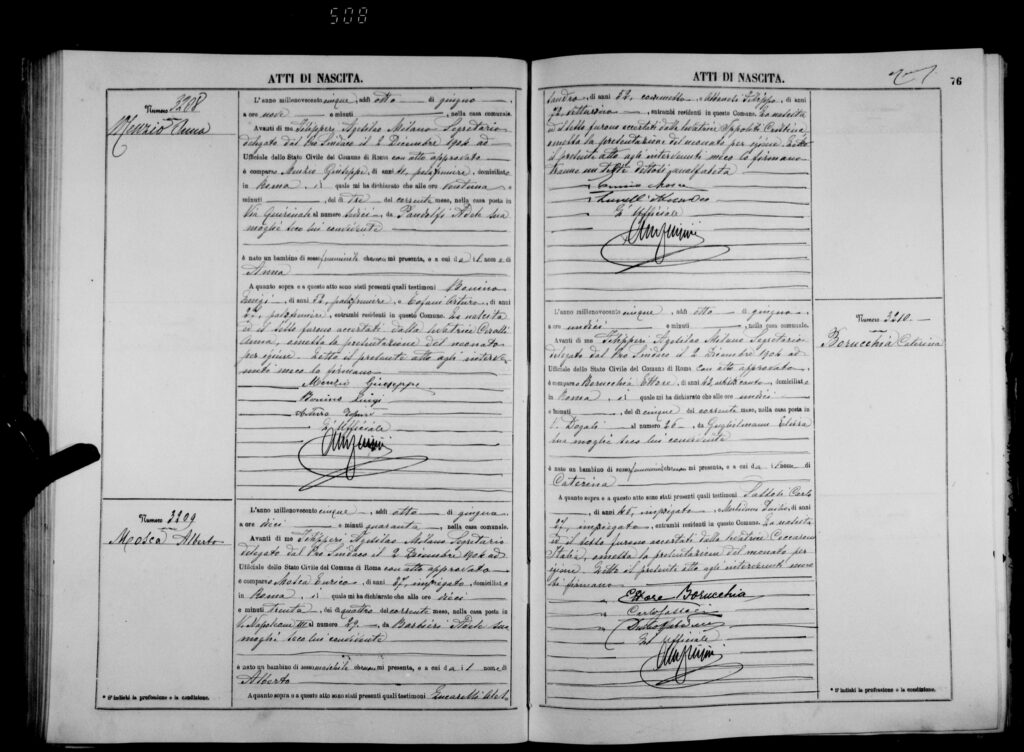 508
ATTI DI NASCITA.
Numero 3208
Menzio Anna
L'anno millenovecento cinque, addì otto di giugno
a ore nove e minuti, nella casa comunale.
Avanti di me Filipperi Agesilao Milano Segretario
delegato dal Pro Sindaco il 2 Dicembre 1904 ad
Ufficiale dello Stato Civile del Comune di Roma con atto approvato
è comparso Menzio Giuseppe, di anni, domiciliato
in Roma, il quale mi ha dichiarato che alle ore ventuna
minuti, del dì tre del corrente mese, nella casa posta in
Via Quirinale al numero undici, da Pandolfi Adele sua
moglie seco lui convivente
è nato un bambino di sesso femminile che non mi presenta, e a cui dà il nome di
Anna
A quanto sopra e a questo atto sono stati presenti quali testimoni Bonino
Luigi, di anni 52, e Arturo, di anni
27, entrambi residenti in questo Comune. La nascita
ed il sesso furono accertati dalla levatrice
Anna, omessa la presentazione del neonato
per igiene. Letto il presente atto agli interve
nuti meco lo firmano
Menzio Giuseppe
Bonino Luigi
Arturo
L'Ufficiale
Numero 3209
Mosca Alberto
L'anno millenovecento cinque, addì otto di giugno
a ore dieci e minuti quaranta, nella casa comunale.
Avanti di me Filipperi Agesilao Milano Segretario
delegato dal Pro Sindaco il 2 Dicembre 1904 ad
Ufficiale dello Stato Civile del Comune di Roma con atto approvato
è comparso Mosca Enrico, di anni 37, impiegato, domiciliato
in Roma, il quale mi ha dichiarato che alle ore dieci
e minuti trenta, del dì quattro del corrente mese, nella casa posta in
V. Napoleone III al numero 32, da Barbieri Adele sua
moglie seco lui convivente
è nato un bambino di sesso maschile che non mi presenta, e a cui dà il nome di
Alberto
A quanto sopra e a questo atto sono stati presenti quali testimoni
* S'indichi la professione o la condizione.
ATTI DI NASCITA.
76
sandro, di anni 32, e Filippo, di anni
entrambi residenti in questo Comune. La nascita
ed il sesso furono accertati dalla levatrice Ippoliti Cristina,
omessa la presentazione del neonato per igiene. Letto
il presente atto agli intervenuti meco lo firmano
tranne un teste dettosi analfabeta
Enrico Mosca
L'Ufficiale
Numero 3210.
Borucchia Caterina
L'anno millenovecento cinque, addì otto di giugno
a ore undici e minuti, nella casa comunale.
Avanti di me Filipperi Agesilao Milano Segretario
delegato dal Pro Sindaco il 2 Dicembre 1904 ad
Ufficiale dello Stato Civile del Comune di Roma con atto approvato
è comparso Borucchia Ettore, di anni 42, domiciliato
in Roma, il quale mi ha dichiarato che alle ore undici
e minuti, del dì cinque del corrente mese, nella casa posta in
V. Dogali al numero 26, da Guglielmann Elisa
sua moglie seco lui convivente
è nato un bambino di sesso femminile che non mi presenta, e a cui dà il nome di
Caterina
A quanto sopra e a questo atto sono stati presenti quali testimoni Carlo
, di anni, impiegato, e
27, impiegato, entrambi residenti in questo Comune. La nascita
ed il sesso furono accertati dalla levatrice
Italia, omessa la presentazione del neonato per
igiene. Letto il presente atto agli intervenuti meco
lo firmano
Ettore Borucchia
L'Ufficiale
* S'indichi la professione o la condizione.